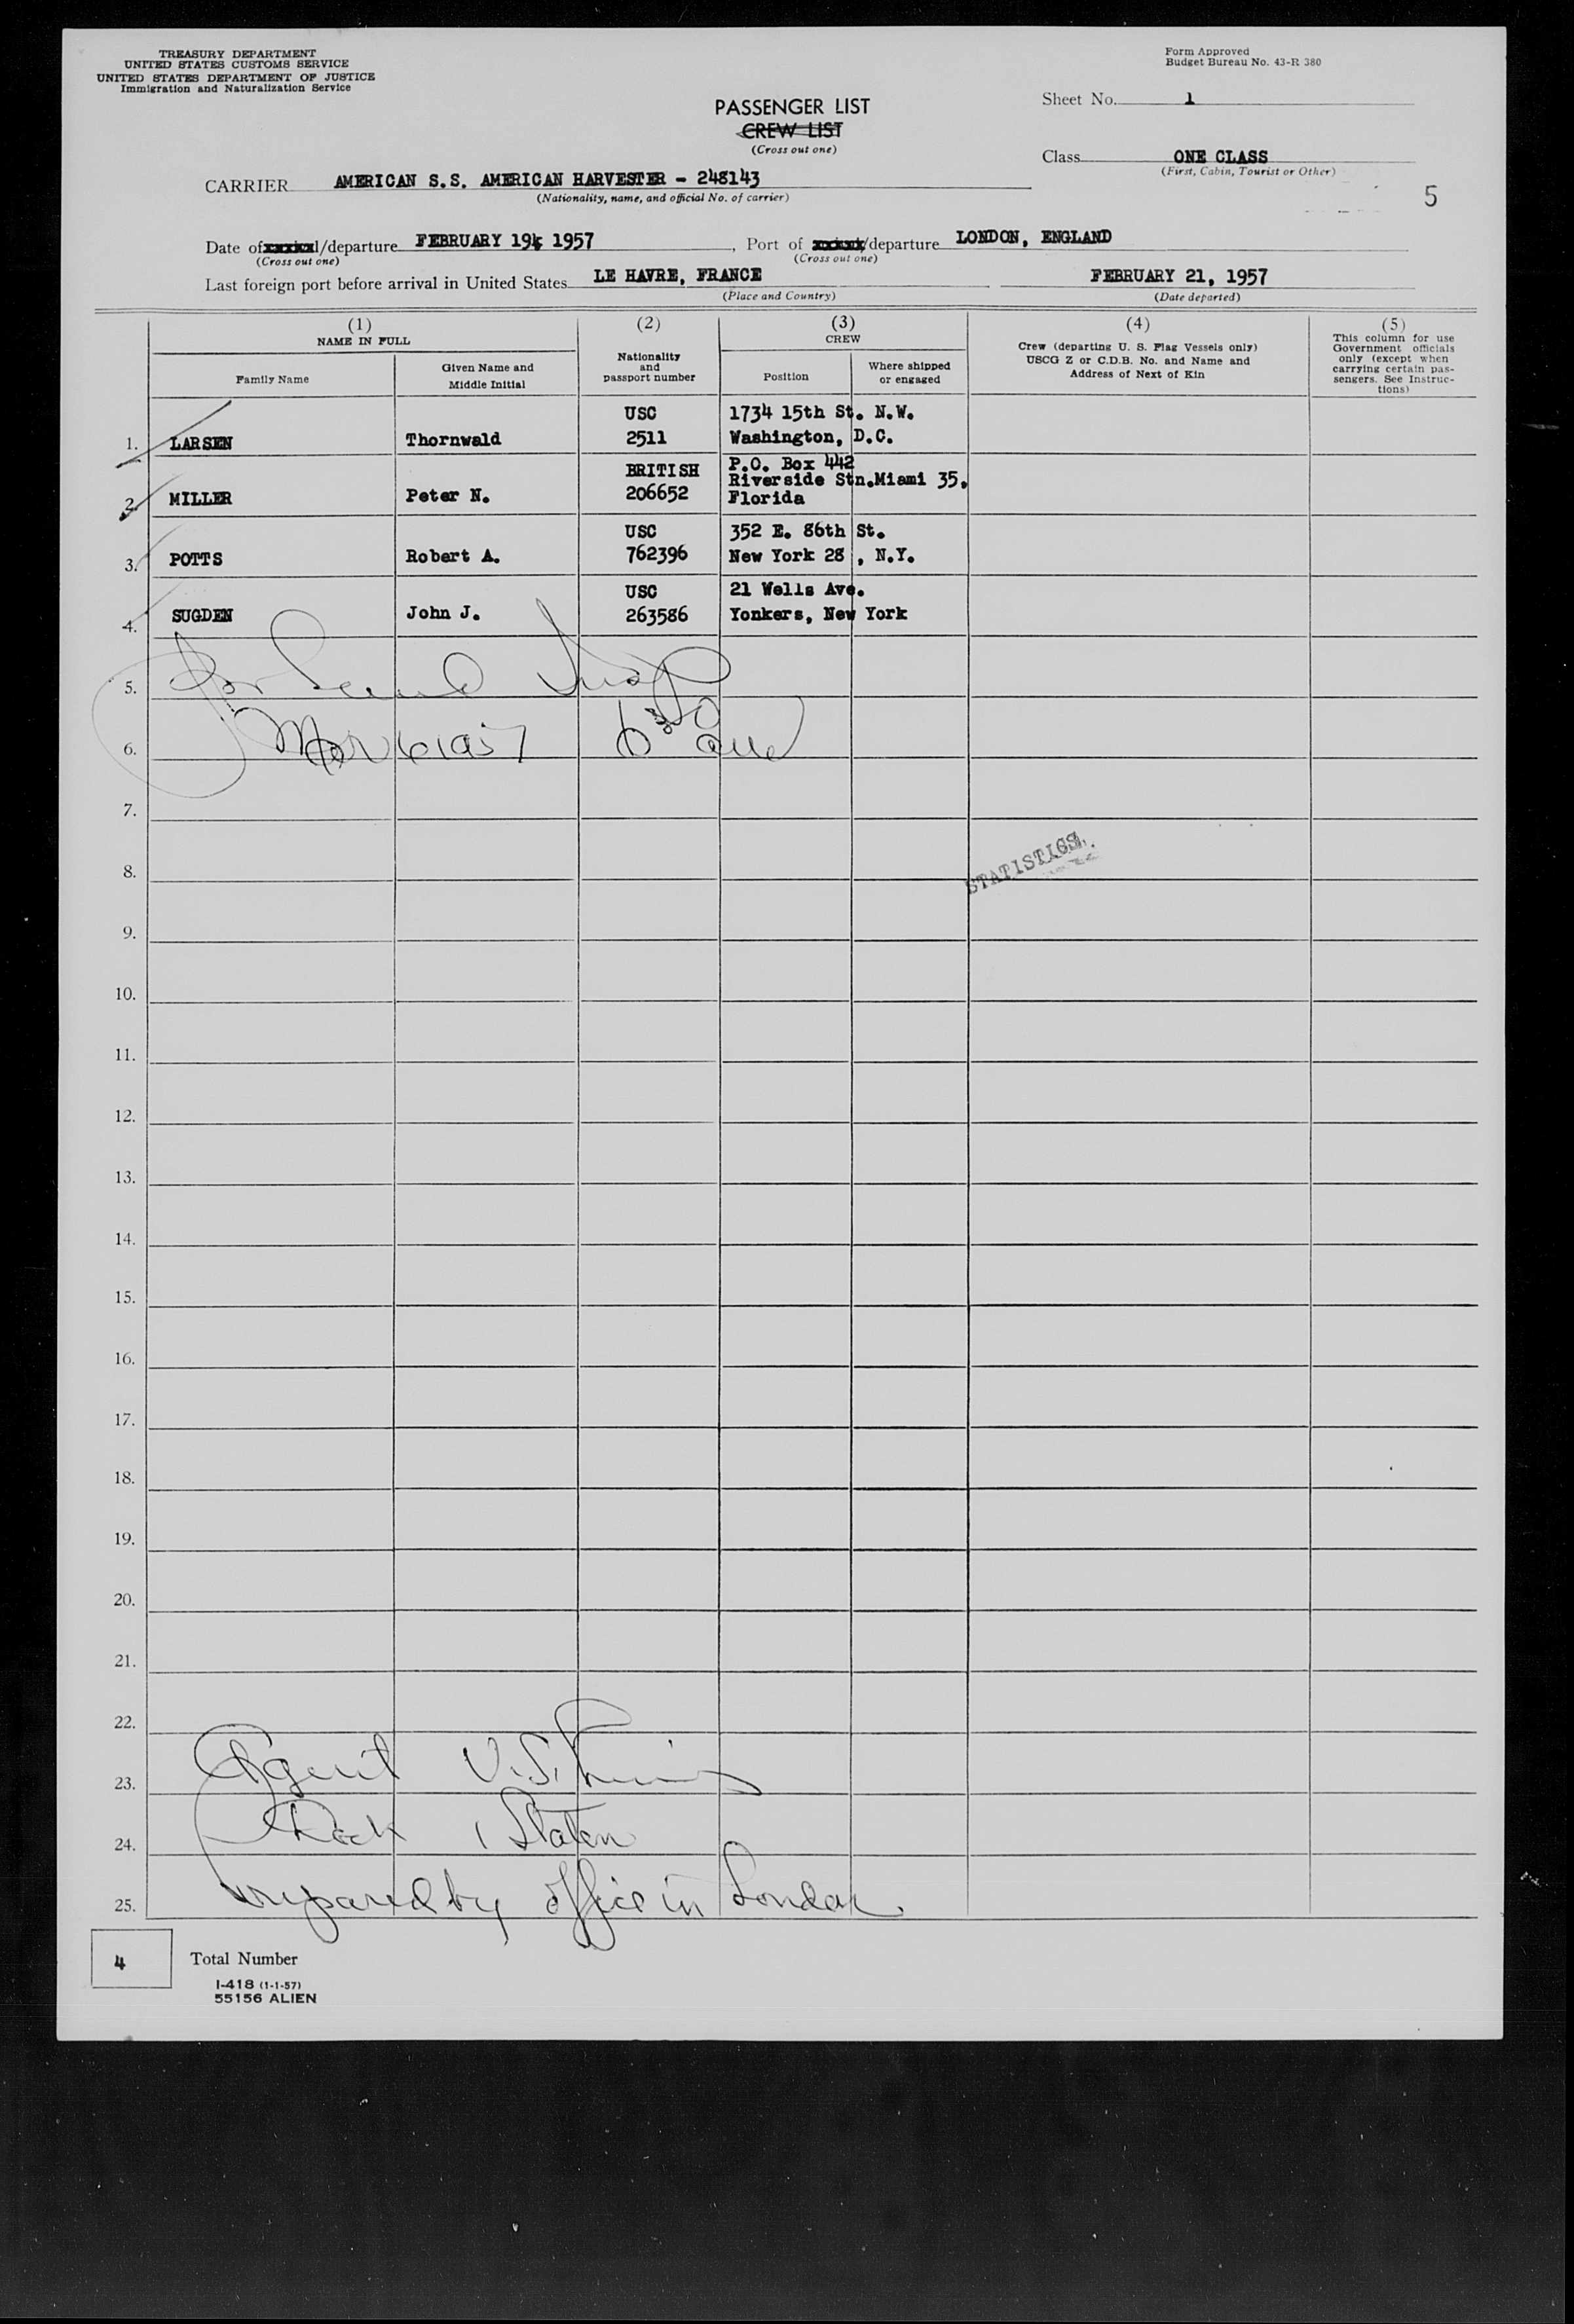 TREASURY DEPARTMENT
UNITED STATES CUSTOMS SERVICE
UNITED STATES DEPARTMENT OF JUSTICE
Immigration and Naturalization Service
Form Approved
Budget Bureau No. 43-R 380
Sheet No. 1
PASSENGER LIST
CREW LIST
(Cross out one)
Class ONE CLASS
(First, Cabin, Tourist or Other)
5
CARRIER AMERICAN S.S. AMERICAN HARVESTER - 248143
(Nationality, name, and official No. of carrier)
Date of /departure FEBRUARY 19 1957, Port of /departure LONDON, ENGLAND
(Cross out one) (Cross out one)
Last foreign port before arrival in United States LE HAVRE, FRANCE FEBRUARY 21, 1957
(Place and Country) (Date departed)
(1) NAME IN FULL
Family Name
Given Name and Middle Initial
(2)
Nationality and passport number
(3) CREW
Position
Where shipped or engaged
(4)
Crew (departing U. S. Flag Vessels only)
USCG Z or C.D.B. No. and Name and
Address of Next of Kin
(5)
This column for use
Government officials
only (except when
carrying certain pas-
sengers. See Instruc-
tions)
USC 1734 15th St. N.W.
1. LARSEN Thornwald 2511 Washington, D.C.
BRITISH P.O. Box 442
Riverside Stn.Miami 35,
2. MILLER Peter N. 206652 Florida
USC 352 E. 86th St.
3. POTTS Robert A. 762396 New York 28 , N.Y.
USC 21 Wells Ave.
4. SUGDEN John J. 263586 Yonkers, New York
5.
6.
7.
8.
STATISTICS.
9.
10.
11.
12.
13.
14.
15.
16.
17.
18.
19.
20.
21.
22.
23. Agent U.S. Lines
24. Staten
25. prepared by office in London
4 Total Number
I-418 (1-1-57)
55156 ALIEN